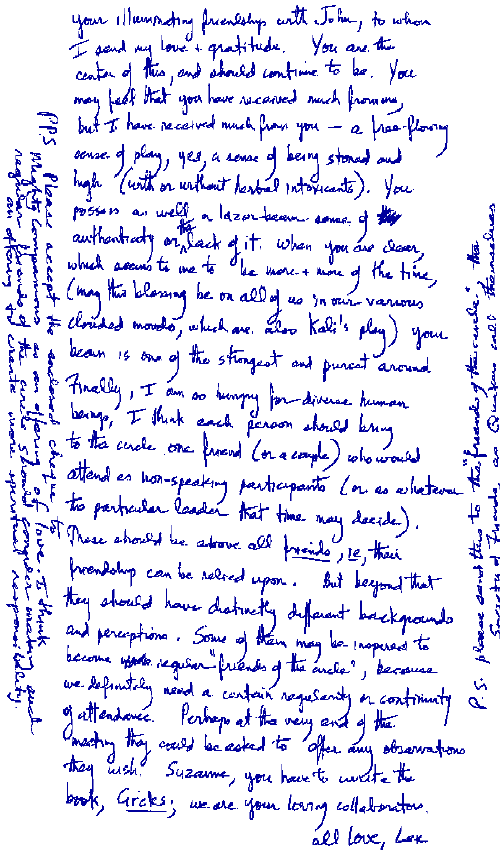 your illuminating friendship with John, to whom
I send my love + gratitude. You are the
center of this, and should continue to be. You
may feel that you have received much from me,
but I have received much from you — a free-flowing
sense of play, yes, a sense of being stoned and
high (with or without herbal intoxicants). You
possess as well a lazer-beam sense of
authenticity or the lack of it. When you are clear,
which seems to me to be more + more of the time,
(may this blessing be on all of us in our various
clouded moods, which are also Kali's play) your
beam is one of the strongest and purest around
Finally, I am so hungry for diverse human
beings, I think each person should bring
to the circle one friend (or a couple) who would
attend as non-speaking participants (or as whatever
the particular leader that time may decide).
These should be above all friends, ie, their
friendship can be relied upon. But beyond that
they should have distinctly different backgrounds
and perceptions. Some of them may be inspired to
become regular "friends of the circle", because
we definitely need a certain regularity or continuity
of attendance. Perhaps at the very end of the
meeting they could be asked to offer any observations
they wish. Suzanne, you have to write the
book, Circles; we are your loving collaborators.
all love, Lex
P.S. please send this to the "friends of the circle" – the
Society of Friends, as Quakers call themselves
PPS Please accept the enclosed cheque to
Mighty Companions as an offering of love. I think
regular friends of the circle should consider making such
an offering to create more spiritual responsibility.